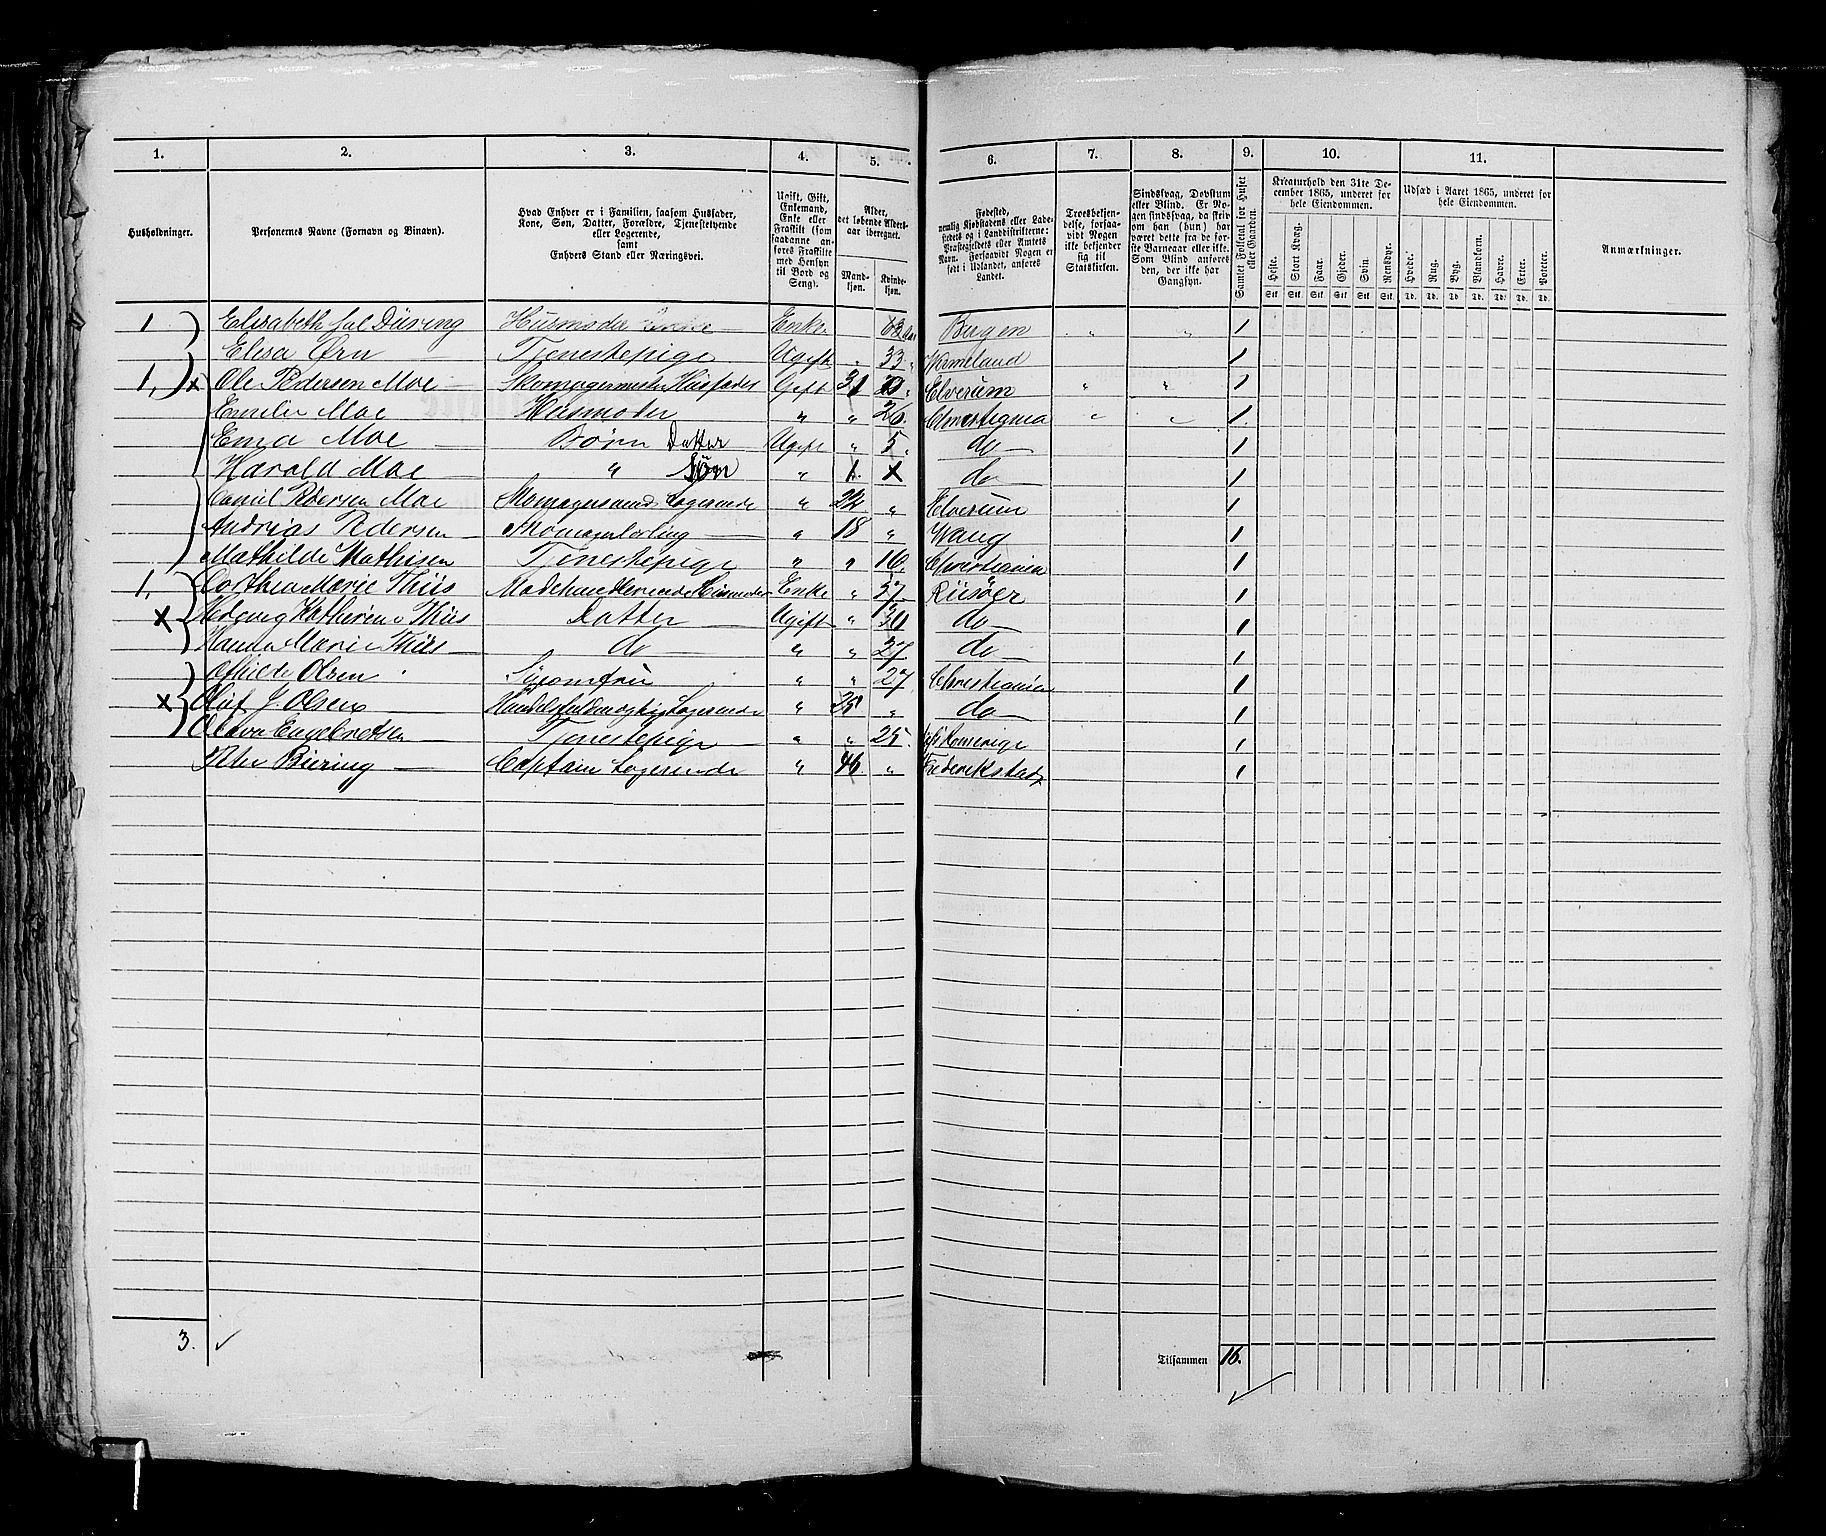 1. 2. 3. 4. 5. 6. 7. 8. 9. 10. 11.
Husholdninger.
Personernes Navne (Fornavn og Binavn).
Hvad Enhver er i Familien, saasom Husfader,
Kone, Søn, Datter, Forældre, Tjenestetyende
eller Logerende,
samt
Enhvers Stand eller Næringsvei.
Ugift, Gift,
Enkemand,
Enke eller
Fraskilt (som
saadanne an-
føres Fraskilte
med Hensyn
til Bord og
Seng).
Alder,
det løbende Alders-
aar iberegnet.
Mand-
kjøn.
Kvinde-
kjøn.
Fødested,
nemlig Kjøbstadens eller Lade-
stedets og i Landdistrikterne:
Præstegjeldets eller Amtets
Navn. Forsaavidt Nogen er
født i Udlandet, anføres
Landet.
Troesbekjen-
delse, forsaa-
vidt Nogen
ikke bekjender
sig til
Statskirken.
Sindssvag, Døvstum
eller Blind. Er No-
gen sindssvag, da skriv
om han (hun) har
været dette fra de før-
ste Barneaar eller ikke.
Som Blind anføres
den, der ikke har
Gangsyn.
Samlet Folketal for Huset
eller Gaarden.
Kreaturhold den 31te De-
cember 1865, underet for
hele Eiendommen.
Heste. Stort Kvæg. Faar. Gjeder. Svin. Rensdyr.
Stk. Stk. Stk. Stk. Stk. Stk.
Udsæd i Aaret 1865, underet for
hele Eiendommen.
Hvede. Rug. Byg. Blandkorn. Havre. Erter. Poteter.
Td. Td. Td. Td. Td. Td. Td.
Anmærkninger.
1 Elisabeth sal Düring Husmoder Enke Enke 63 Bergen " " 1
Elisa Ørn Tjenestepige Ugift " 33 1
1, x Ole Pedersen Moe Skomagermester Husfader Gift 31 Elverum " " 1
Emilie Moe Husmoder " " 26 Christiania " " 1
Ema Moe Børn Datter Ugift " 5 do 1
Harald Moe " Søn " 1 do 1
Pedersen Moe Skomagersvend Logerende " 22 " Elverum 1
Andreas Pedersen Skomagerlærling " 18 " Vang 1
Mathilde Mathisen Tjenestepige " " 16 Christiania 1
1, Dorthea Marie Thiis Madehandlerende Husmoder Enke " 57 Riisøer 1
x Hedevig Katherina Thiis Datter Ugift " 30 do 1
Hanna Marie Thiis do " " 27 do 1
Olsen Syjomfru " " 27 Christiania 1
x Oluf J. Olsen Handelsfuldmægtig Logerende " 25 " do 1
Engebretsen Tjenestepige " " 25 1
Peter Büring Captain Logerende " 46 " Frederikstad 1
3.
Tilsammen 16.